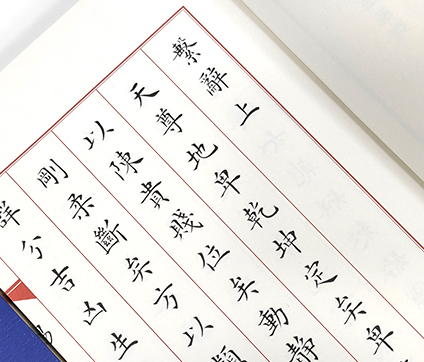 繫辭上
天尊地卑乾坤定矣卑
以陳貴賤位矣動靜
剛柔斷矣方以類
群分吉凶生